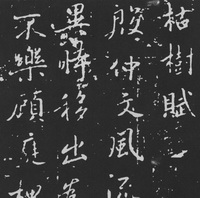 枯樹賦
殷仲文風流
異惟移出
不樂顧庭槐